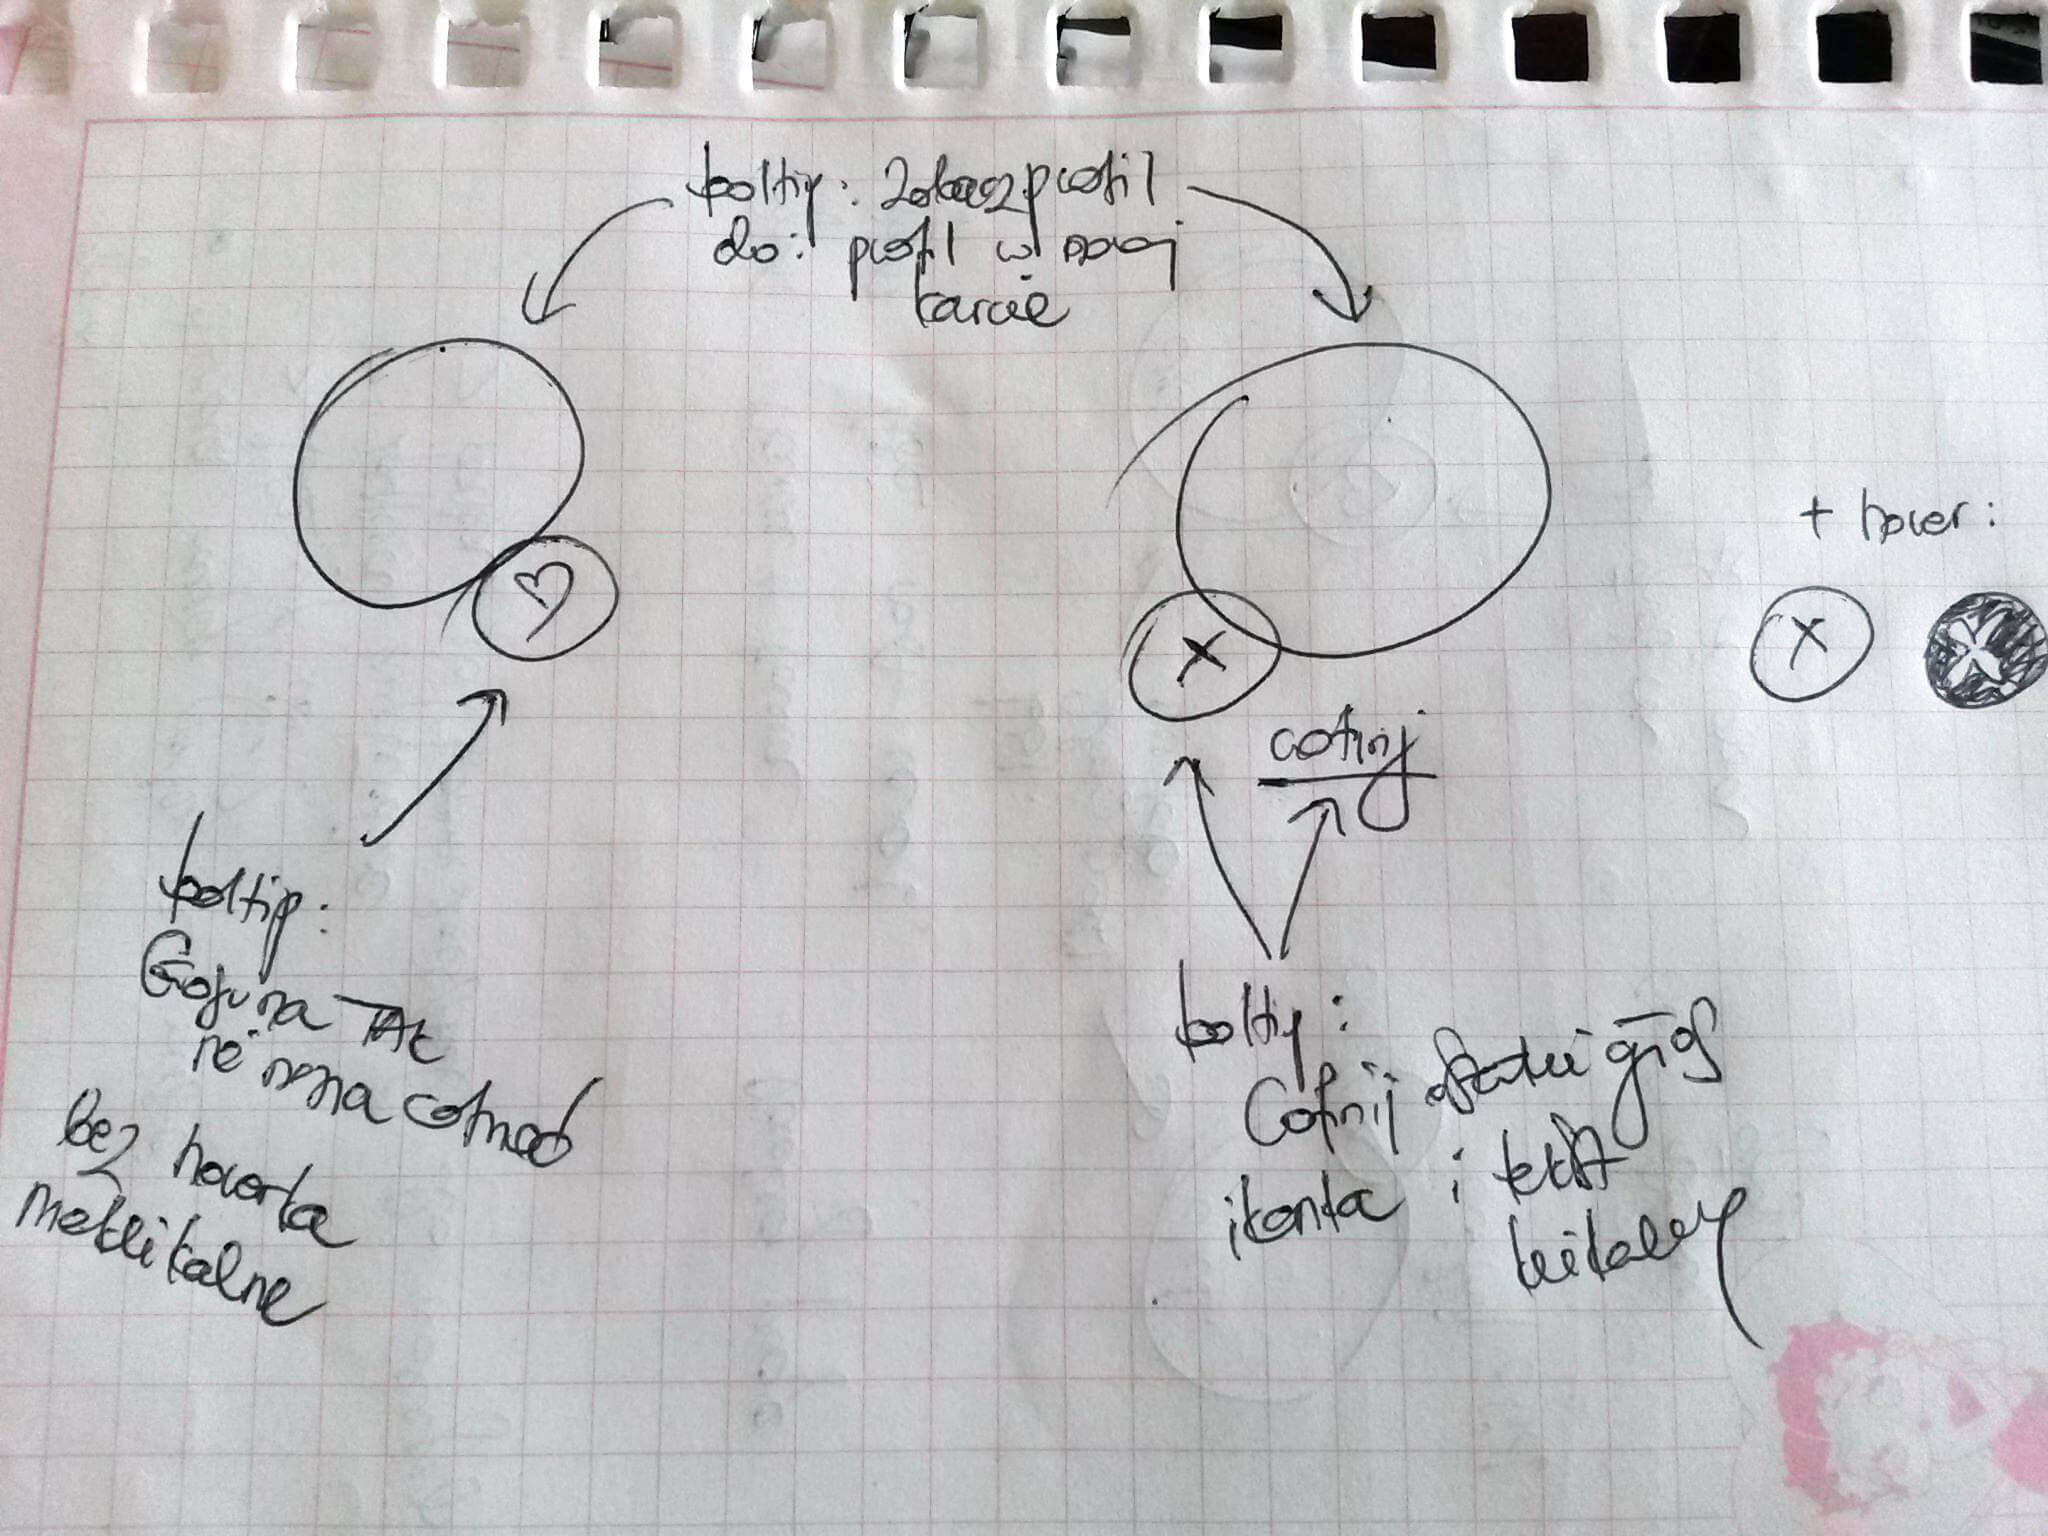 tooltip: Zobacz profil
do: profil w nowej
karcie
+ hover:
cofnij
tooltip:
Głosu na TAK
nie można cofnąć
bez hoverka
nieklikalne
tooltip:
Cofnij ostatni głos
ikonka i tekst
klikalny